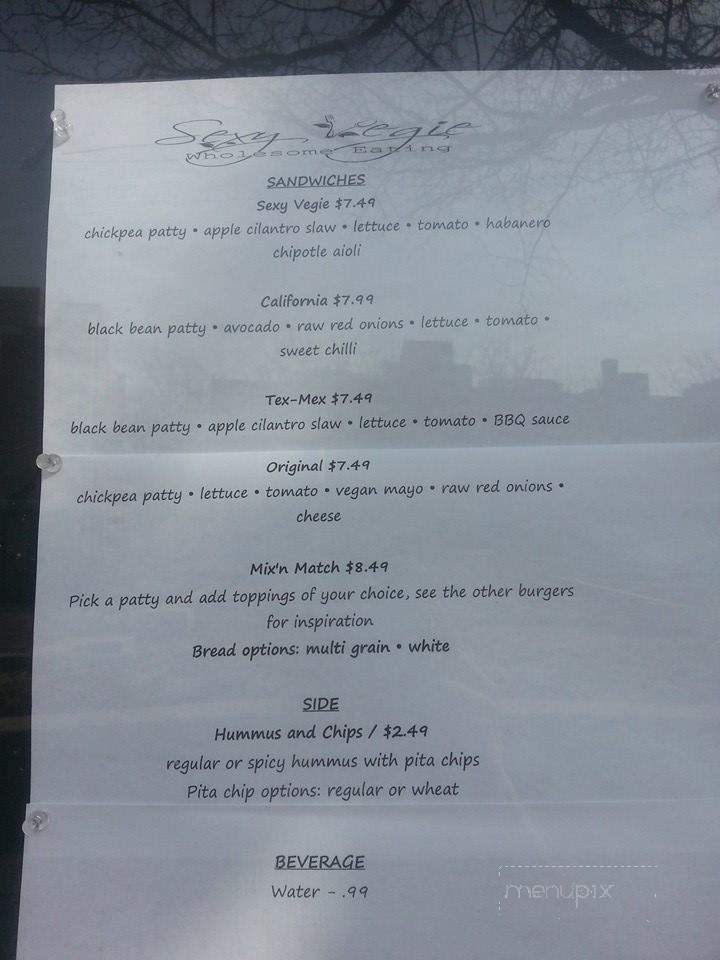 Sexy Vegie
Wholesome Eating
SANDWICHES
Sexy Vegie $7.49
chickpea patty • apple cilantro slaw • lettuce • tomato • habanero
chipotle aioli
California $7.99
black bean patty • avocado • raw red onions • lettuce • tomato •
sweet chilli
Tex-Mex $7.49
black bean patty • apple cilantro slaw • lettuce • tomato • BBQ sauce
Original $7.49
chickpea patty • lettuce • tomato • vegan mayo • raw red onions •
cheese
Mix'n Match $8.49
Pick a patty and add toppings of your choice, see the other burgers
for inspiration
Bread options: multi grain • white
SIDE
Hummus and Chips / $2.49
regular or spicy hummus with pita chips
Pita chip options: regular or wheat
BEVERAGE
Water - .99
menupix